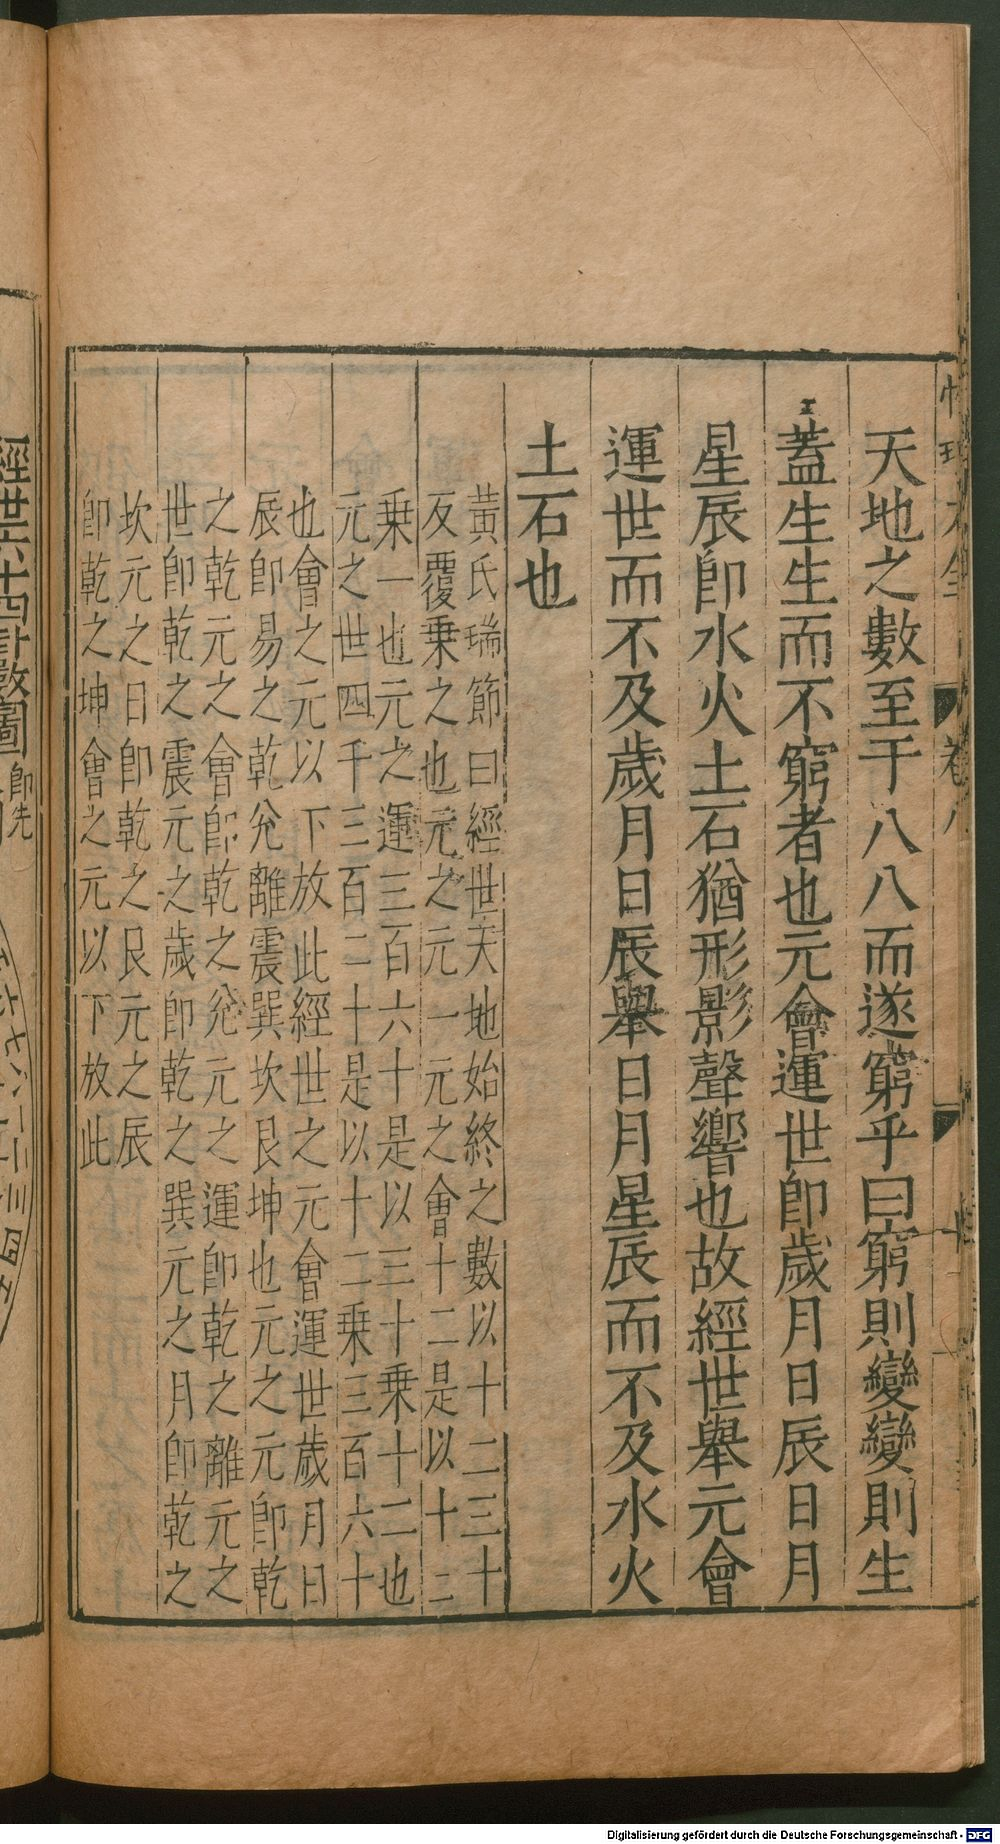 天地之數至于八八而遂窮乎曰窮則變變則生
蓋生生而不窮者也元會運世即歲月日辰日月
星辰即水火土石猶形影聲響也故經世舉元會
運世而不及歲月日辰舉日月星辰而不及水火
土石也
黃氏瑞節曰經世天地始終之數以十二三十
反覆乗之也元之元一元之會十二是以十二
乗一也元之運三百六十是以三十乗十二也
元之世四千三百二十是以十二乗三百六十
也會之元以下放此經世之元會運世歲月日
辰即易之乾兊離震巽坎艮坤也元之元即乾
之乾元之會即乾之兊元之運即乾之離元之
世即乾之震元之歲即乾之巽元之月即乾之
坎元之日即乾之艮元之辰
即乾之坤會之元以下放此
卷八
經世六十四卦數圖
Digitalisierung gefördert durch die Deutsche Forschungsgemeinschaft - DFG